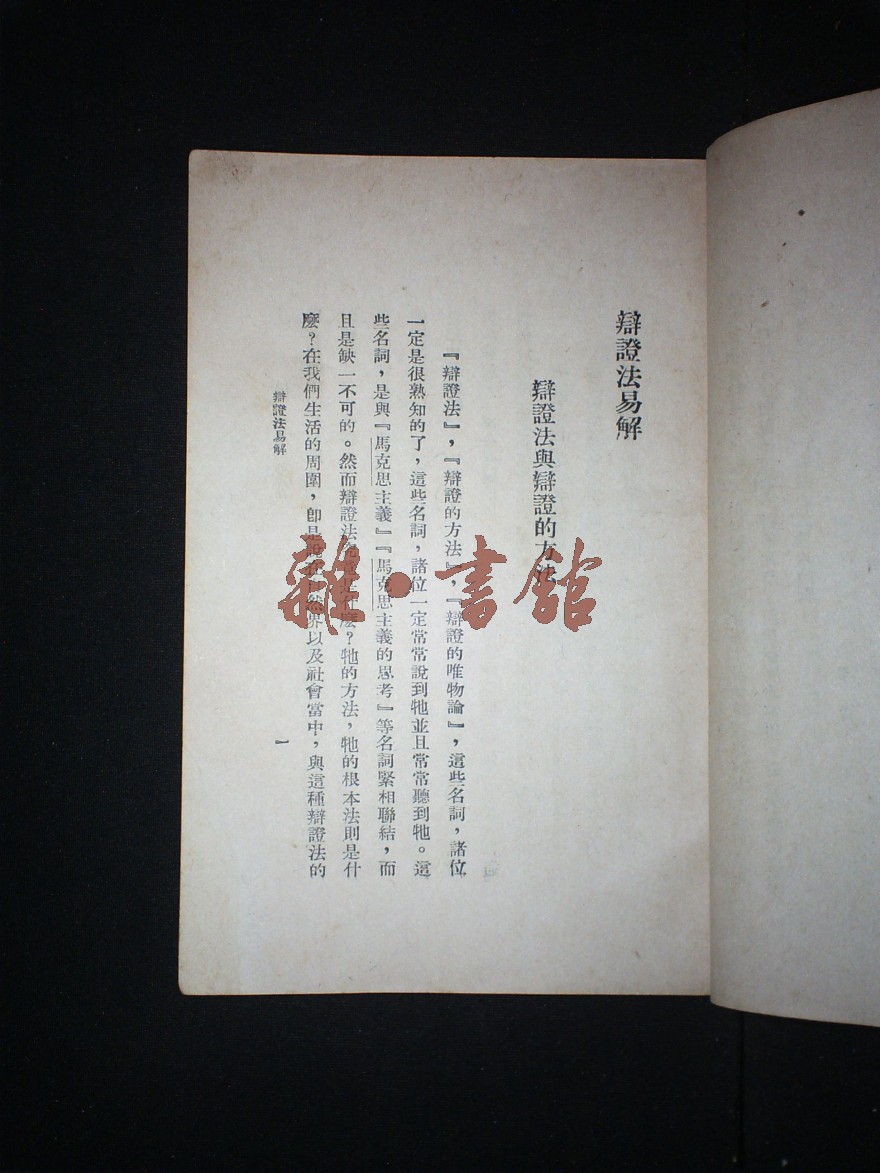 辯證法易解
辯證法與辯證的方法
『辯證法』，『辯證的方法』，『辯證的唯物論』，這些名詞，諸位
一定是很熟知的了，這些名詞，諸位一定常常說到牠並且常常聽到牠。這
些名詞，是與『馬克思主義』『馬克思主義的思考』等名詞緊相聯結，而
且是缺一不可的。然而辯證法究竟是什麼？牠的方法，牠的根本法則是什
麼？在我們生活的周圍，卽是說在自然界以及社會當中，與這種辯證法的
辯證法易解
一
雜·書館